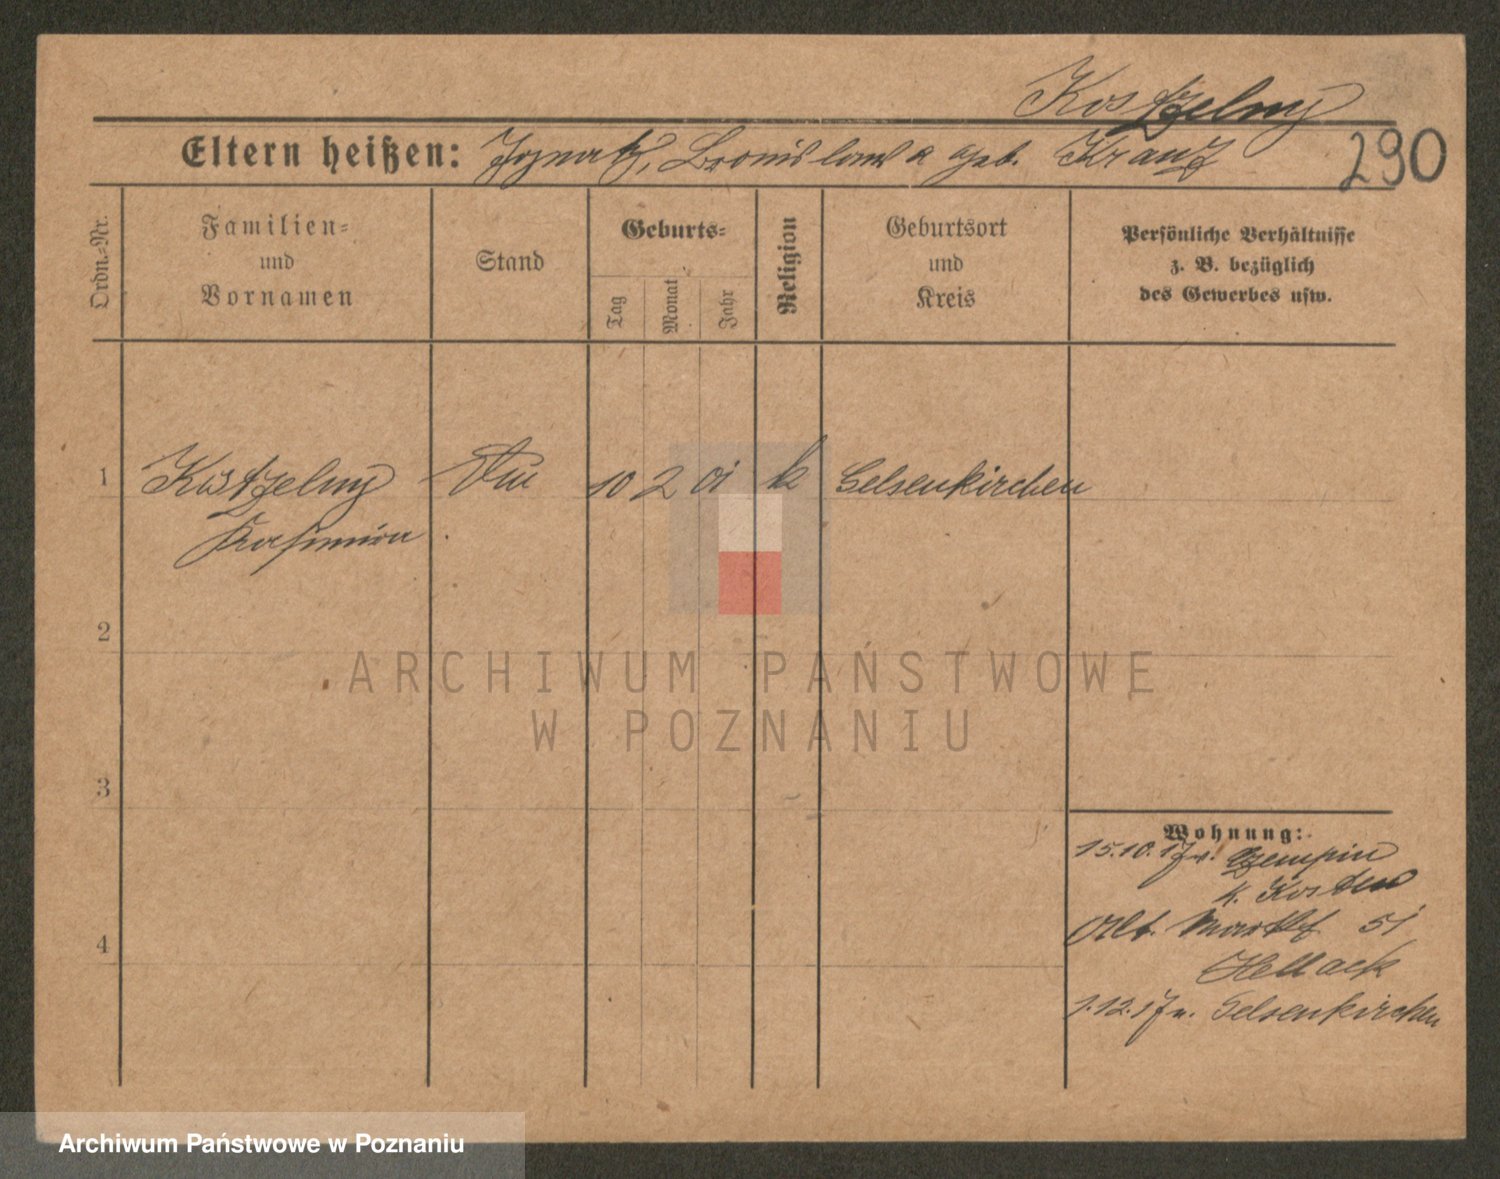 Kostzelny
Eltern heißen: Ignatz, Bronislawa geb. Kranz
290
Ordn.-Nr.
Familien-
und
Vornamen
Stand
Geburts-
Tag
Monat
Jahr
Religion
Geburtsort
und
Kreis
Persönliche Verhältnisse
z. B. bezüglich
des Gewerbes usw.
1 Kostzelny 10 2 01 k Gelsenkirchen
Kasimira
2
3
4
Wohnung:
15.10.17 v. Czempin
K. Kosten
Alt. Markt 51
1.12.17 n. Gelsenkirchen
ARCHIWUM PAŃSTWOWE
W POZNANIU
Archiwum Państwowe w Poznaniu